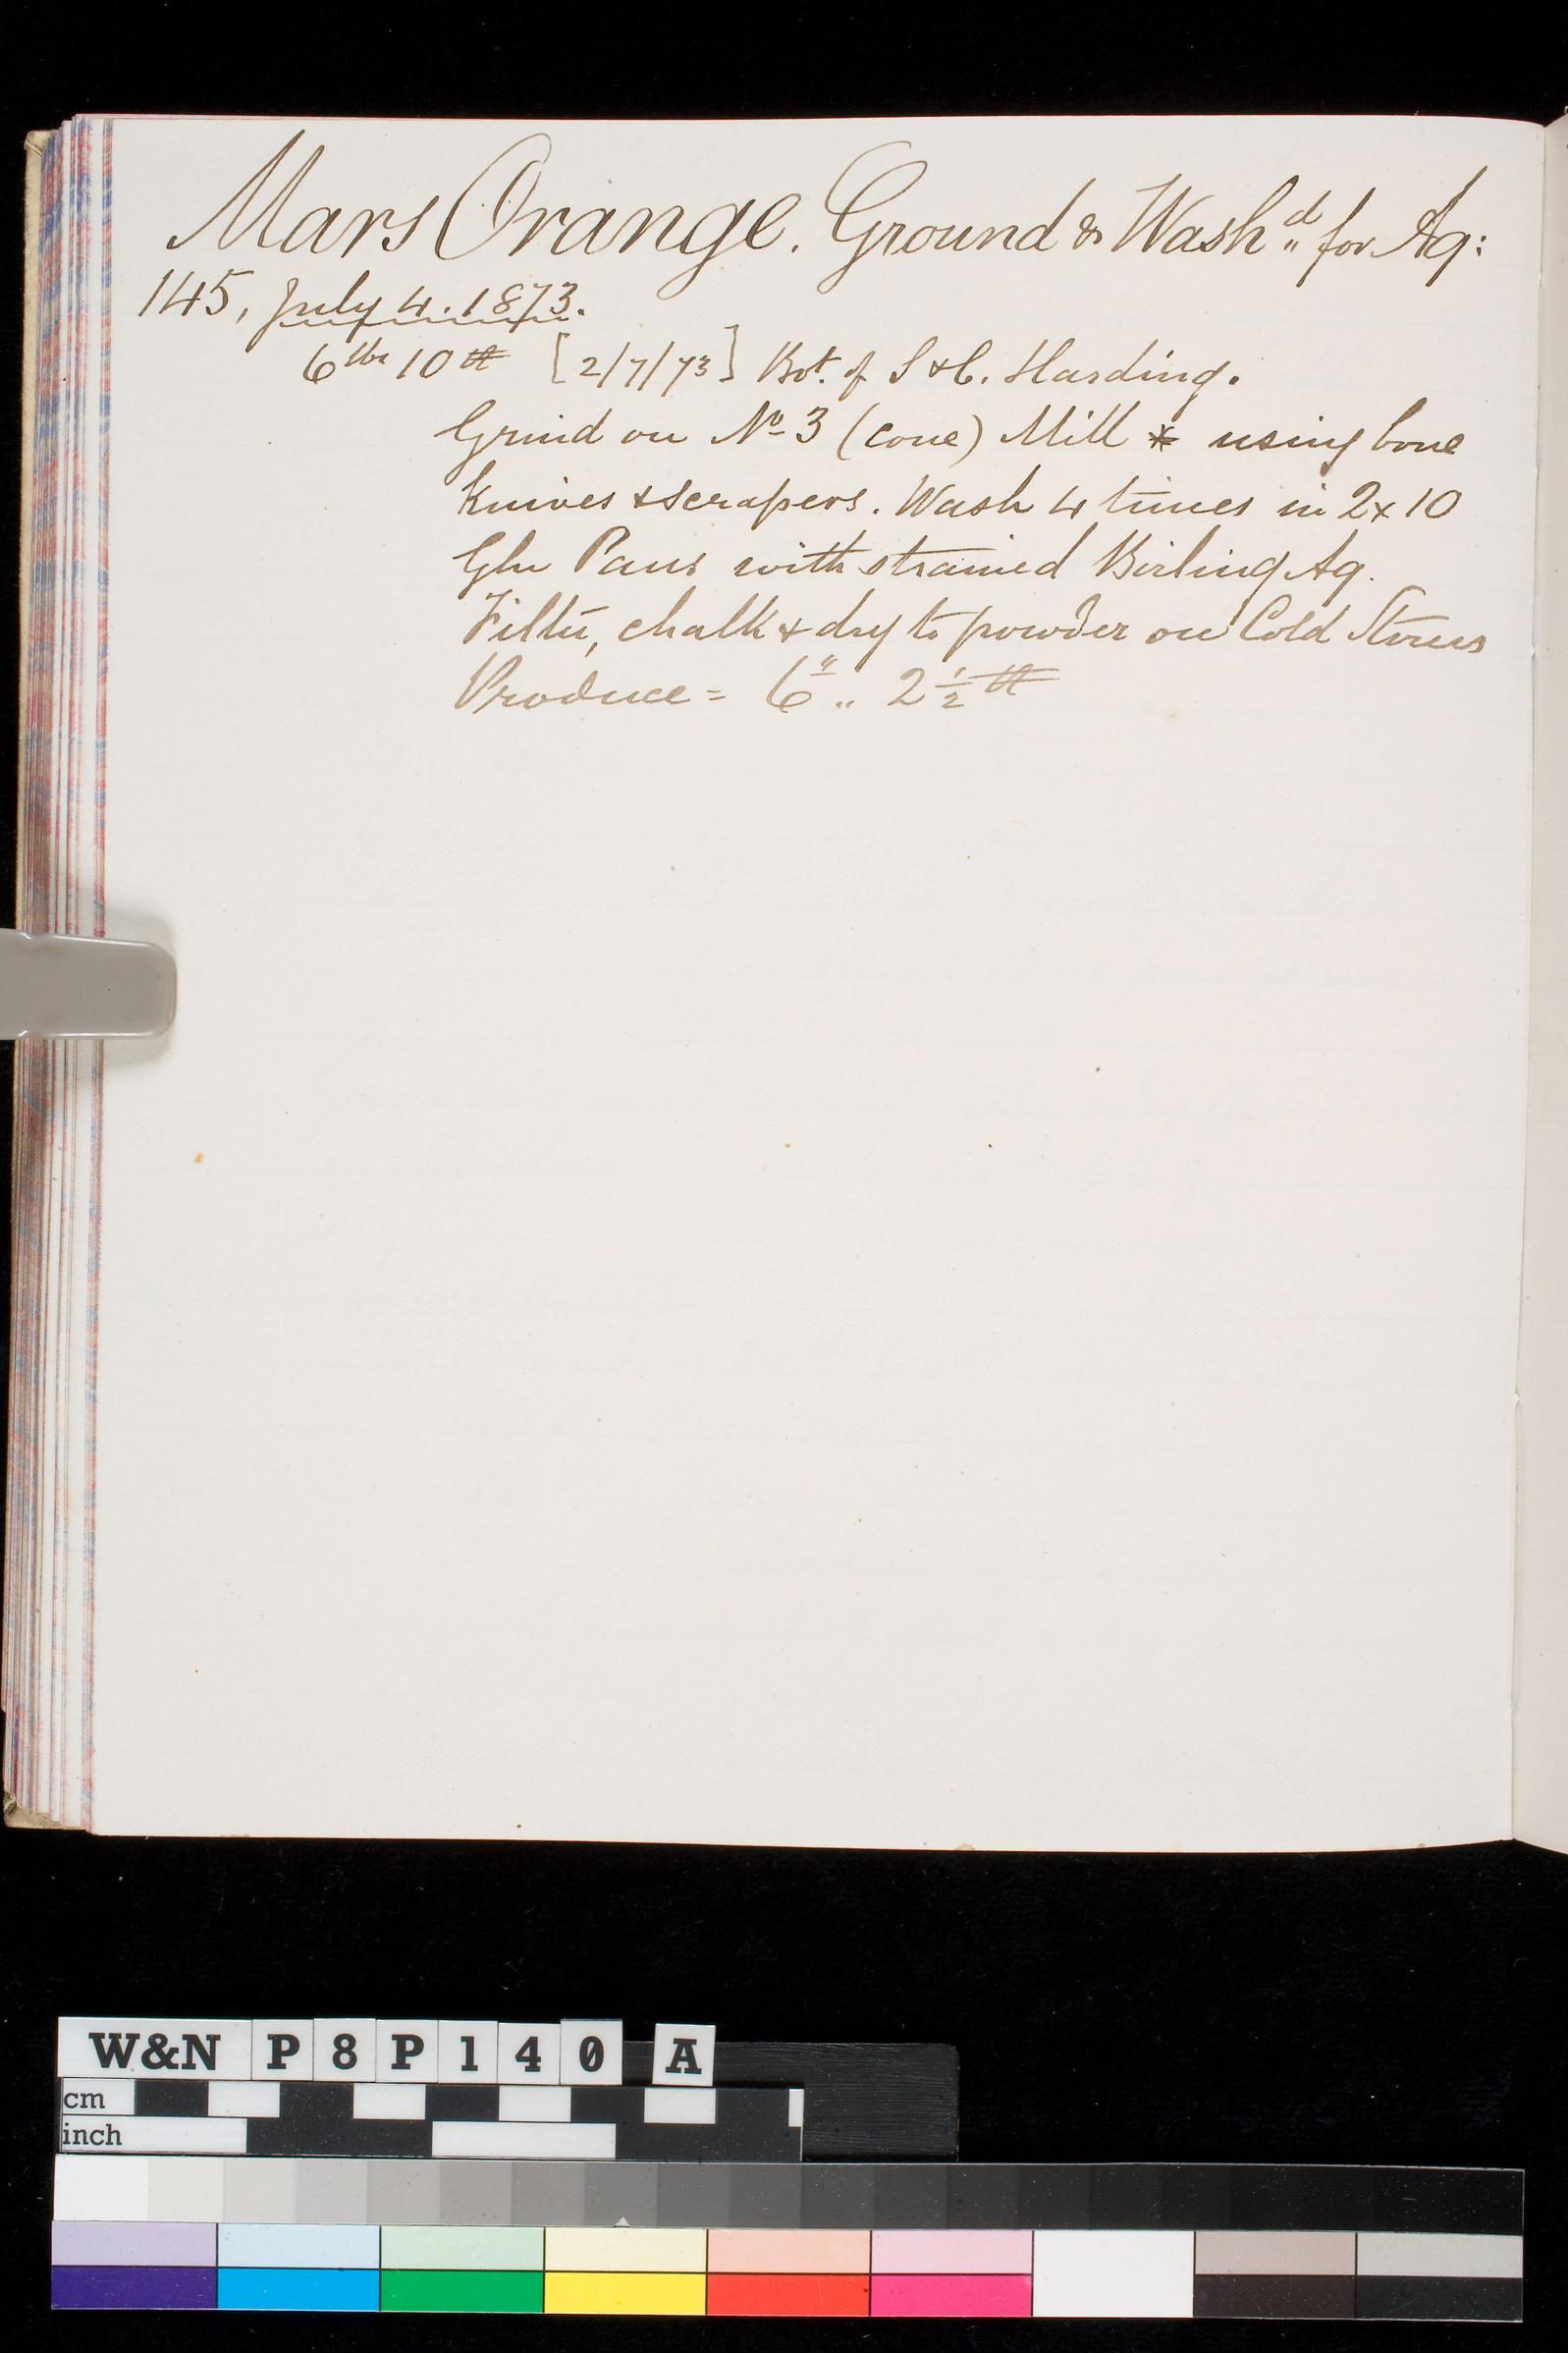 Mars Orange. Ground & Wash.d for Aq:
145, July 4. 1873.
6 lbs 10 [2/7/73] Bot. of S & C. Harding.
Grind on No 3 (cone) Mill * using bone
Knives & Scrapers. Wash 4 times in 2 x 10
Gln Pans with strained Boiling Aq.
Filter, chalk & dry to powder on Cold Stoves
Produce = 6 " .. 2 1/2
W&N P8P140 A
cm
inch